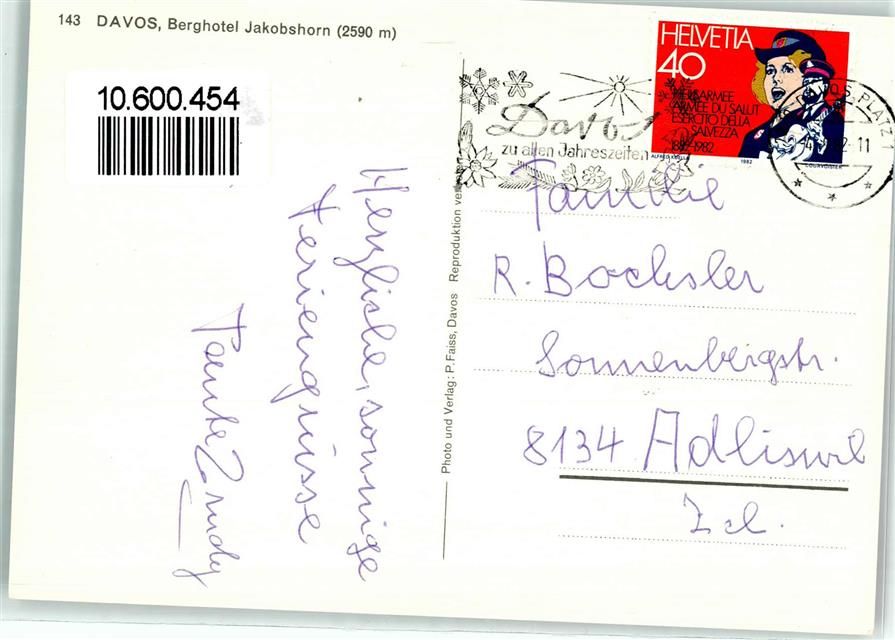 143 DAVOS, Berghotel Jakobshorn (2590 m)
10.600.454
HELVETIA
40
HEILSARMEE
ARMÉE DU SALUT
ESERCITO DELLA
SALVEZZA
1882-1982
1982
COURVOISIER
Davos
zu allen Jahreszeiten
DAVOS PLATZ 1
82-11
Herzliche, sonnige
Feriengrüsse
Tante
Photo und Verlag: P. Faiss, Davos Reproduktion
Familie
R. Bochsler
Sonnenbergstr.
8134 Adliswil